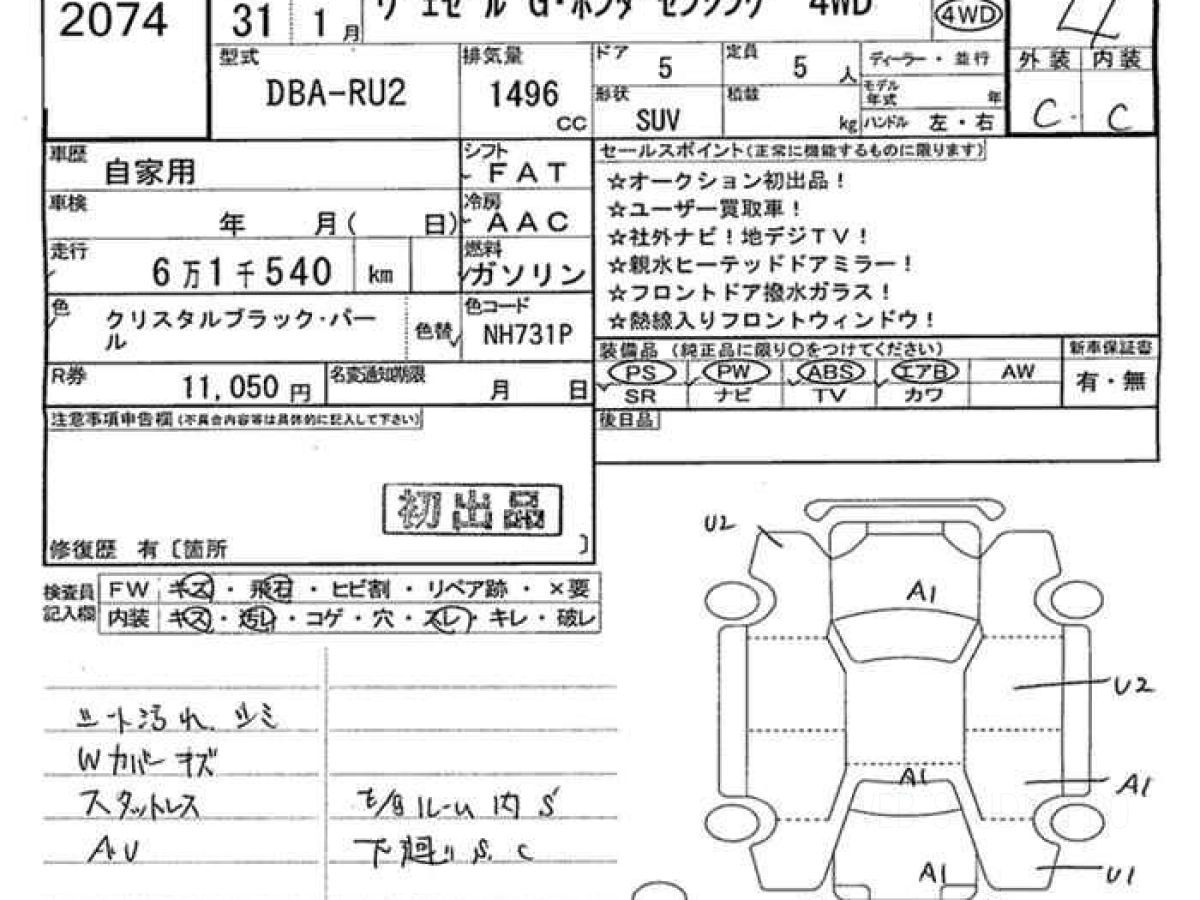 2074
31 1月
ヴェゼル G・ホンダ センシング 4WD
4WD
4
型式
DBA-RU2
排気量
1496
cc
ドア
5
定員
5 人
ディーラー・並行
モデル年式 年
形状
SUV
積載
kg
ハンドル 左・右
外装 内装
C C
車歴
自家用
シフト
FAT
車検
年 月( 日)
冷房
AAC
走行
6万1千540 km
燃料
ガソリン
色
クリスタルブラック・パール
色替
色コード
NH731P
R券
11,050 円
名変通知期限
月 日
セールスポイント(正常に機能するものに限ります)
☆オークション初出品!
☆ユーザー買取車!
☆社外ナビ!地デジTV!
☆親水ヒーテッドドアミラー!
☆フロントドア撥水ガラス!
☆熱線入りフロントウィンドウ!
装備品 (純正品に限り○をつけてください)
新車保証書
PS PW ABS エアB AW
SR ナビ TV カワ
有・無
後日品
注意事項申告欄(不具合内容等は具体的に記入して下さい)
初出品
修復歴 有〔箇所 〕
検査員記入欄
FW キズ・飛石・ヒビ割・リペア跡・×要
内装 キズ・汚レ・コゲ・穴・スレ・キレ・破レ
シート汚れ、シミ
Wカバーキズ
スタットレス
AU
ルーム内 S
下廻り S、C
U2
A1
U2
A1
A1
A1
U1